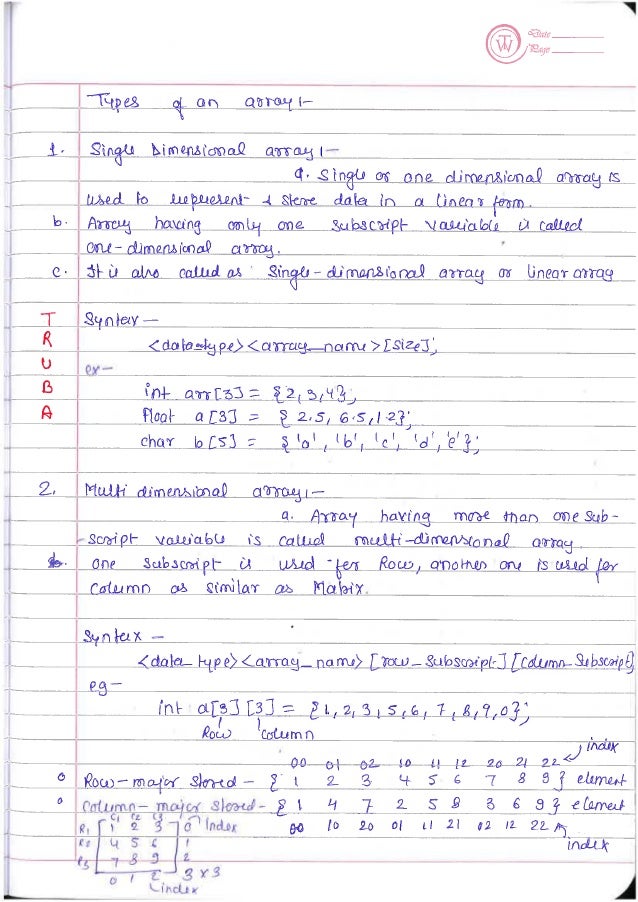 TW
Date
Page
Types of an array :-
1. Single Dimensional array :-
a. Single or one dimensional array is
used to represent & store data in a linear form.
b. Array having only one subscript variable is called
one-dimensional array.
c. It is also called as Single-dimensional array or linear array
Syntax -
<data-type> <array_name> [size];
ex-
int arr[3] = {2, 3, 4};
float a[3] = {2.5, 6.5, 1.2};
char b[5] = {'a', 'b', 'c', 'd', 'e'};
T
R
U
B
A
2. Multi dimensional array :-
a. Array having more than one sub-
-script variable is called multi-dimensional array.
b. one subscript is used for Row, another one is used for
Column as similar as Matrix.
Syntax -
<data_type> <array_name> [row_subscript] [column_subscript]
eg-
int a[3][3] = {1, 2, 3, 5, 6, 7, 8, 9, 0};
Row column
00 01 02 10 11 12 20 21 22 index
Row-major stored - {1 2 3 4 5 6 7 8 9} element
Column-major stored - {1 4 7 2 5 8 3 6 9} element
00 10 20 01 11 21 02 12 22
index
C1 C2 C3
R1 1 2 3 0 Index
R2 4 5 6 1
R3 7 8 9 2
0 1 2 3 x 3
index